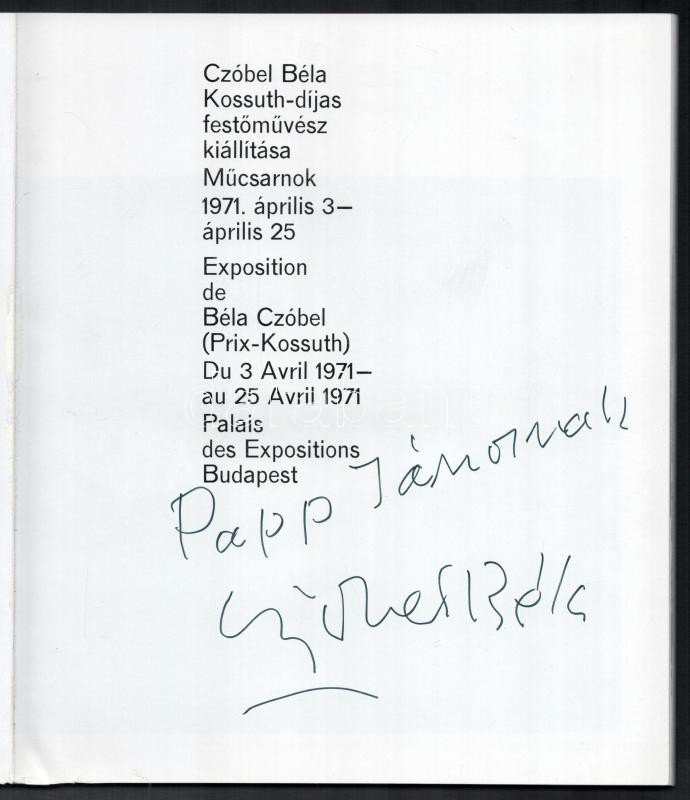 Czóbel Béla
Kossuth-díjas
festőművész
kiállítása
Műcsarnok
1971. április 3—
április 25
Exposition
de
Béla Czóbel
(Prix-Kossuth)
Du 3 Avril 1971—
au 25 Avril 1971
Palais
des Expositions
Budapest
Papp Jánosnak
Czóbel Béla
darabanth